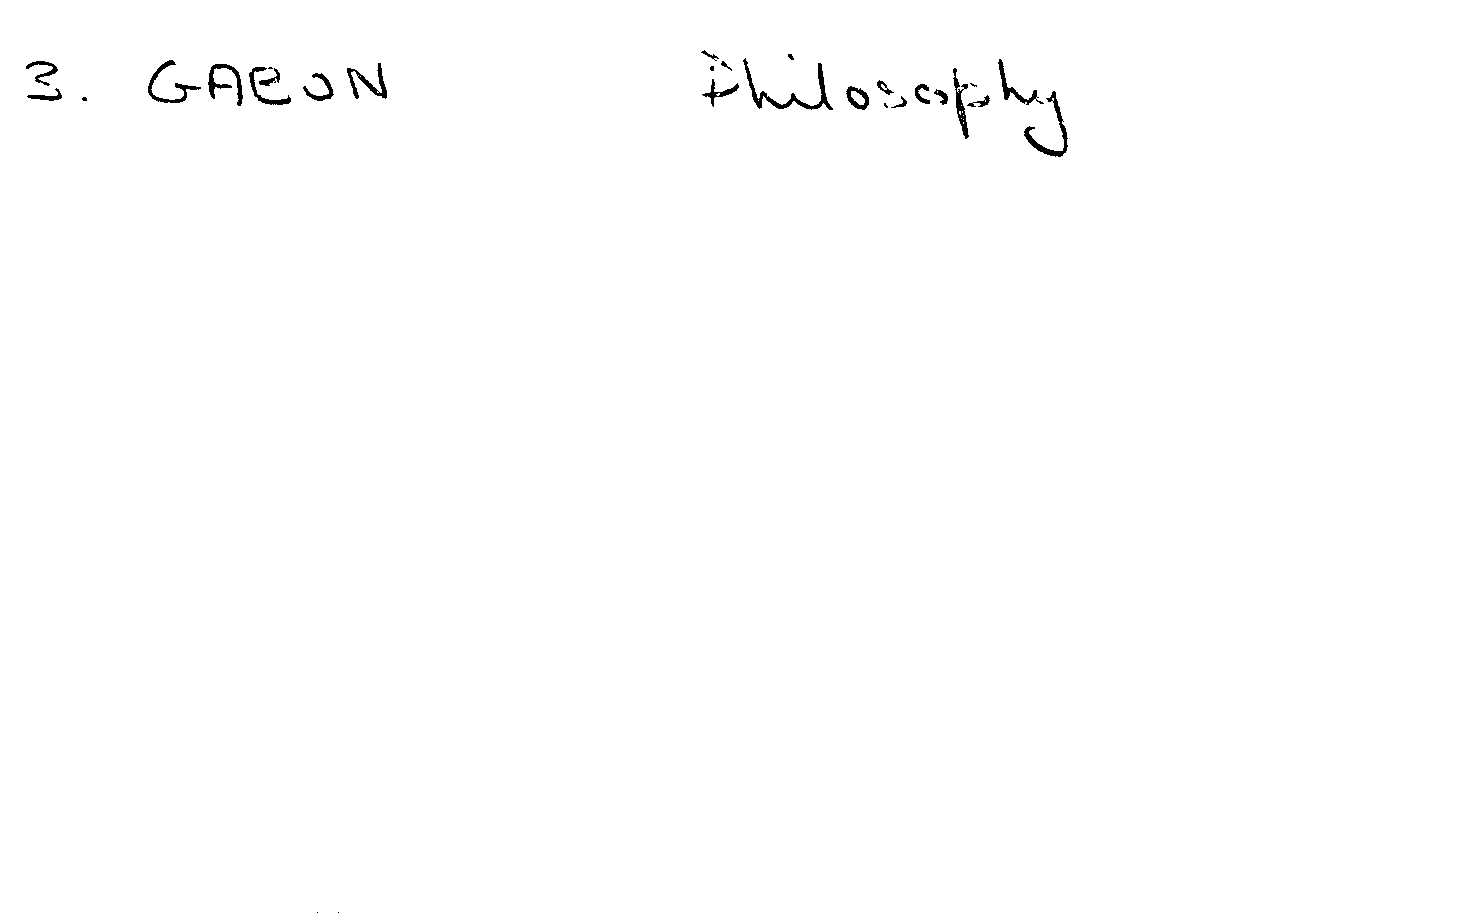 3. GABON Philosophy